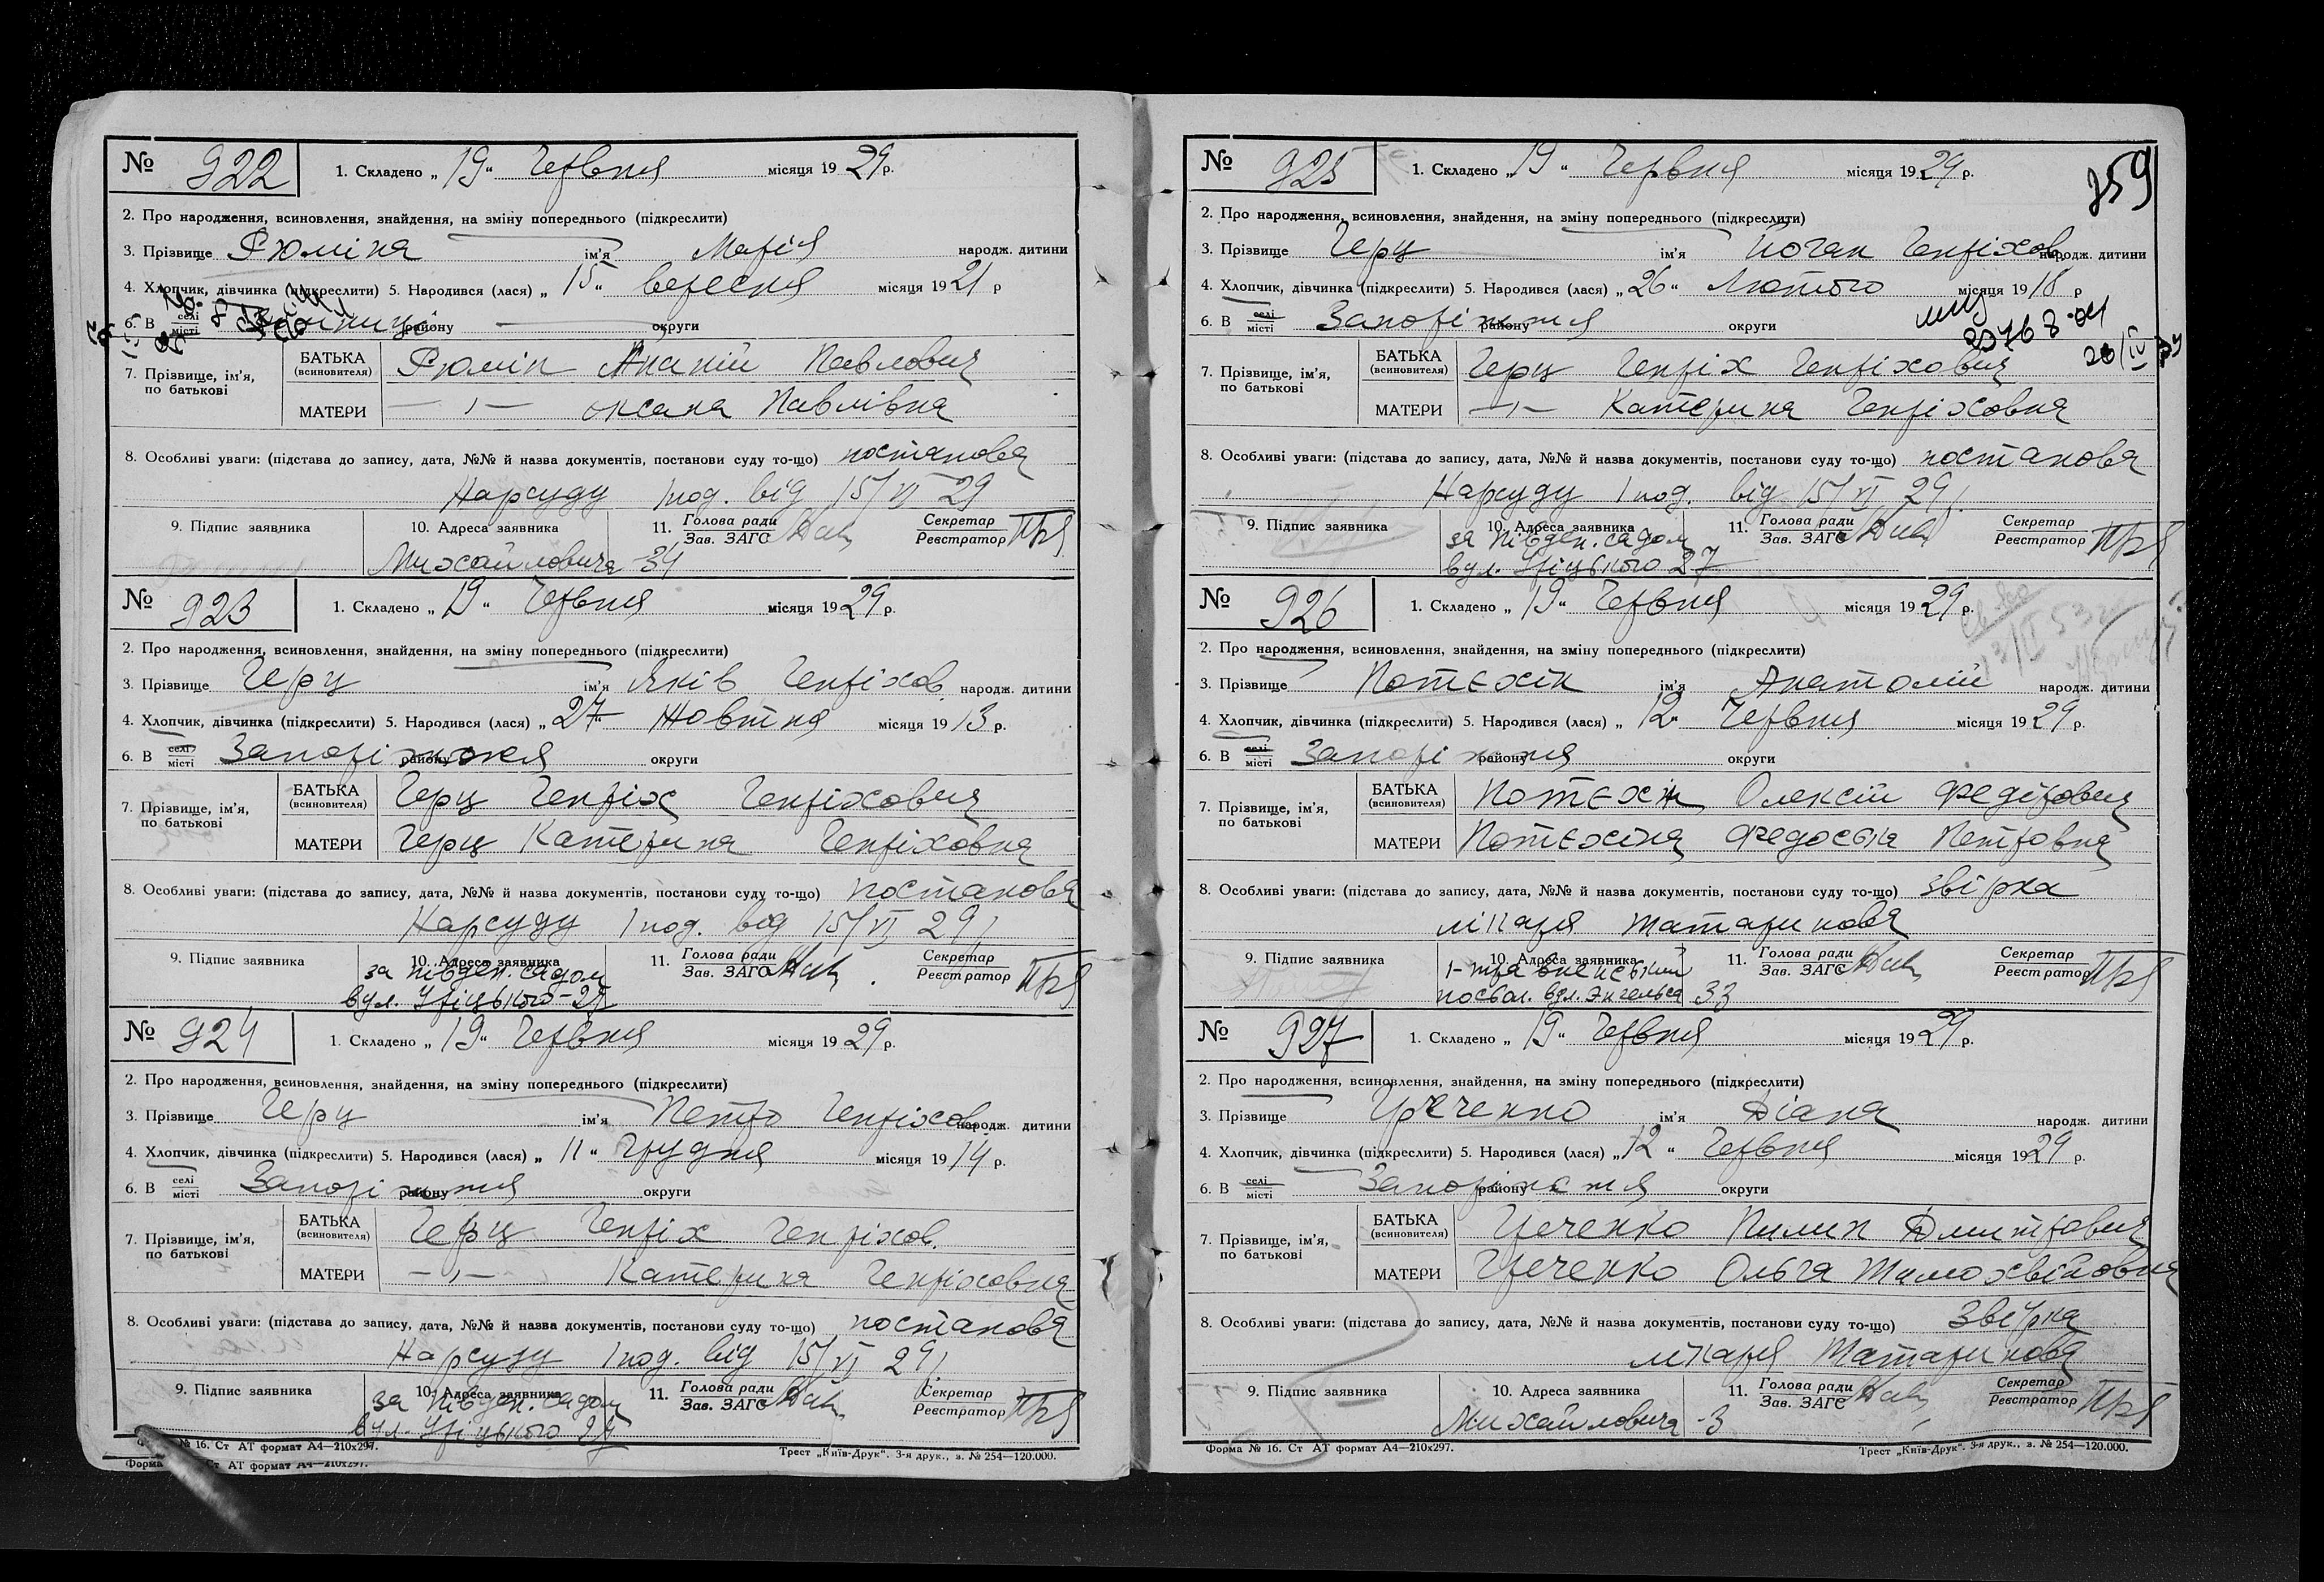 № 922 1. Складено „19“ Червня місяця 1929 р.
2. Про народження, всиновлення, знайдення, на зміну попереднього (підкреслити)
3. Прізвище Рюміна ім'я Марія народж. дитини
4. Хлопчик, дівчинка (підкреслити) 5. Народився (лася) „15“ вересня місяця 1921 р
6. В селі місті району округи
7. Прізвище, ім'я, по батькові
БАТЬКА (всиновителя) Рюмін Ананій Павлович
МАТЕРИ —„— Оксана Павлівна
8. Особливі уваги: (підстава до запису, дата, №№ й назва документів, постанови суду то-що) постанова
Нарсуду 1 под. від 15/VI 29
9. Підпис заявника 10. Адреса заявника 11. Голова ради Зав. ЗАГС Секретар Реєстратор
Михайловича-34
№ 923 1. Складено „19“ Червня місяця 1929 р.
2. Про народження, всиновлення, знайдення, на зміну попереднього (підкреслити)
3. Прізвище Герц ім'я Яків Генріхов. народж. дитини
4. Хлопчик, дівчинка (підкреслити) 5. Народився (лася) „27“ Жовтня місяця 1913 р.
6. В селі місті Запоріжжя району округи
7. Прізвище, ім'я, по батькові
БАТЬКА (всиновителя) Герц Генріх Генріхович
МАТЕРИ Герц Катерина Генріховна
8. Особливі уваги: (підстава до запису, дата, №№ й назва документів, постанови суду то-що) постанова
Нарсуду 1 под. від 15/VI 29
9. Підпис заявника 10. Адреса заявника 11. Голова ради Зав. ЗАГС Секретар Реєстратор
за півден. садом
вул. Уріцького-27
№ 924 1. Складено „19“ Червня місяця 1929 р.
2. Про народження, всиновлення, знайдення, на зміну попереднього (підкреслити)
3. Прізвище Герц ім'я Петро Генріхов. народж. дитини
4. Хлопчик, дівчинка (підкреслити) 5. Народився (лася) „11“ Грудня місяця 1914 р.
6. В селі місті Запоріжжя району округи
7. Прізвище, ім'я, по батькові
БАТЬКА (всиновителя) Герц Генріх Генріхов.
МАТЕРИ —„— Катерина Генріховна
8. Особливі уваги: (підстава до запису, дата, №№ й назва документів, постанови суду то-що) постанова
Нарсуду 1 под. від 15/VI 29
9. Підпис заявника 10. Адреса заявника 11. Голова ради Зав. ЗАГС Секретар Реєстратор
за півден. садом
вул. Уріцького 27
№ 16. Ст АТ формат А4—210х297. Трест „Київ-Друк“. 3-я друк., з. № 254—120.000.
Форма Ст АТ формат А4—210х297.
359
№ 925 1. Складено „19“ Червня місяця 1929 р.
2. Про народження, всиновлення, знайдення, на зміну попереднього (підкреслити)
3. Прізвище Герц ім'я Йоган Генріхов. народж. дитини
4. Хлопчик, дівчинка (підкреслити) 5. Народився (лася) „26“ Лютого місяця 1918 р
6. В селі місті Запоріжжя району округи
7. Прізвище, ім'я, по батькові
БАТЬКА (всиновителя) Герц Генріх Генріхович
МАТЕРИ —„— Катерина Генріховна
8. Особливі уваги: (підстава до запису, дата, №№ й назва документів, постанови суду то-що) постанова
Нарсуду 1 под. від 15/VI 29
9. Підпис заявника 10. Адреса заявника 11. Голова ради Зав. ЗАГС Секретар Реєстратор
за півден. садом
вул. Уріцького 27
№ 926 1. Складено „19“ Червня місяця 1929 р.
2. Про народження, всиновлення, знайдення, на зміну попереднього (підкреслити)
3. Прізвище Потєхін ім'я Анатолій народж. дитини
4. Хлопчик, дівчинка (підкреслити) 5. Народився (лася) „12“ Червня місяця 1929 р.
6. В селі місті Запоріжжя району округи
7. Прізвище, ім'я, по батькові
БАТЬКА (всиновителя) Потєхін Олексій Федірович
МАТЕРИ Потєхіна Федосія Петровна
8. Особливі уваги: (підстава до запису, дата, №№ й назва документів, постанови суду то-що) звірка
лікаря Татаринова
9. Підпис заявника 10. Адреса заявника 11. Голова ради Зав. ЗАГС Секретар Реєстратор
вул. Энгельса 33
№ 927 1. Складено „19“ Червня місяця 1929 р.
2. Про народження, всиновлення, знайдення, на зміну попереднього (підкреслити)
3. Прізвище Греченко ім'я Діана народж. дитини
4. Хлопчик, дівчинка (підкреслити) 5. Народився (лася) „12“ Червня місяця 1929 р.
6. В селі місті Запоріжжя району округи
7. Прізвище, ім'я, по батькові
БАТЬКА (всиновителя) Греченко Пилип Дмитрович
МАТЕРИ Греченко Ольга Тимохвійовна
8. Особливі уваги: (підстава до запису, дата, №№ й назва документів, постанови суду то-що) Звірка
лікаря Татаринова
9. Підпис заявника 10. Адреса заявника 11. Голова ради Зав. ЗАГС Секретар Реєстратор
Михайловича-3
Форма № 16. Ст АТ формат А4—210х297. Трест „Київ-Друк“. 3-я друк., з. № 254—120.000.